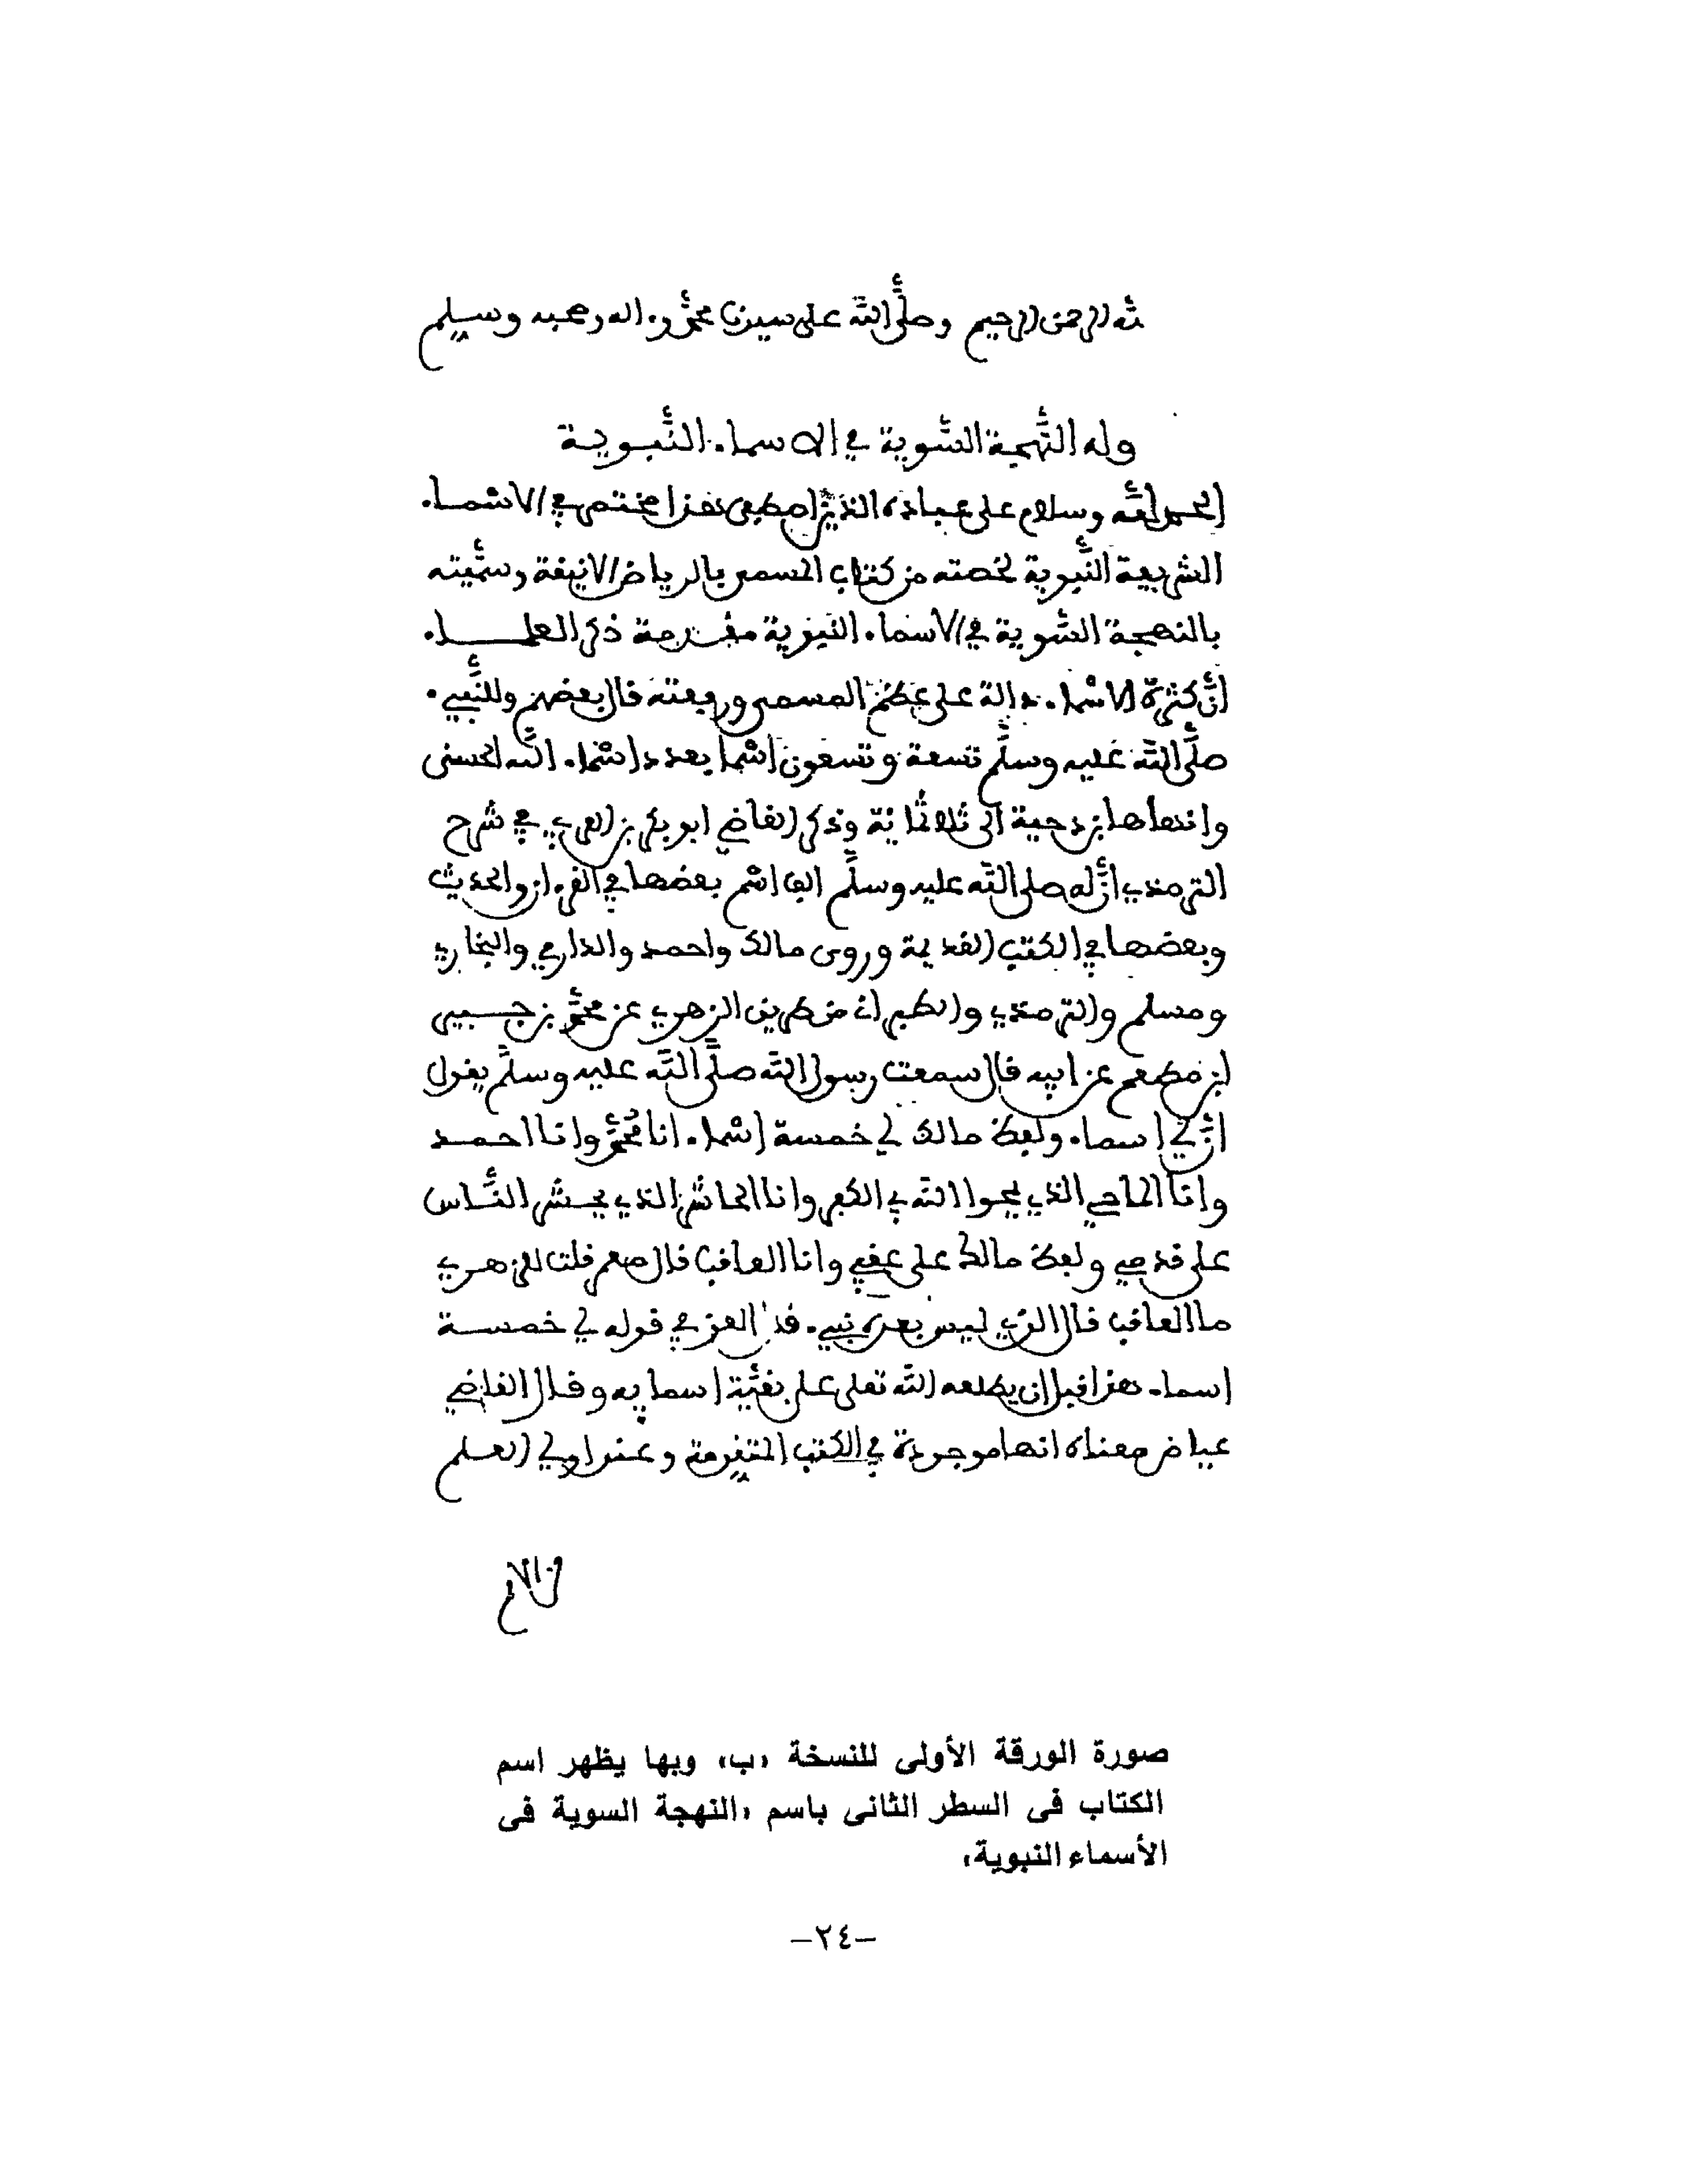 لله الرحمن الرحيم وصلى الله على سيدنا محمد واله وصحبه وسلم
وله النهجة السوية في الاسماء النبوية
الحمد لله وسلام على عباده الذين اصطفى هذا مختصر في الاسماء
الشريعة النبوية لخصته من كتاب المسمى بالرياض الانيفة وسميته
بالنهجة السوية في الاسماء النبوية مقدمة ذكر العلماء
أن كثرة الاسماء دالة على عظم المسمى ورفعته قال بعضهم وللنبي
صلى الله عليه وسلم تسعة وتسعون اسما بعدد اسماء الله الحسنى
وانهاها ابن دحية الى ثلاثمائة وذكر القاضي ابو بكر بن العربي في شرح
الترمذي ان له صلى الله عليه وسلم الف اسم بعضها في القرءان والحديث
وبعضها في الكتب القديمة وروى مالك واحمد والدارمي والبخاري
ومسلم والترمذي والطبراني من طريق الزهري عن محمد بن جبير
ابن مطعم عن ابيه قال سمعت رسول الله صلى الله عليه وسلم يقول
ان لي اسماء ولفظ مالك لي خمسة اسماء انا محمد وانا احمد
وانا الماحي الذي يمحوا الله بي الكفر وانا الحاشر الذي يحشر الناس
على قدمي ولفظ مالك على عقبي وانا العاقب قال معمر قلت للزهري
ما العاقب قال الذي ليس بعده نبي قال العزفي قوله لي خمسة
اسماء هذا قبل ان يطلعه الله تعلى على بقية اسمايه وقال القاضي
عياض معناه انها موجودة في الكتب المتقدمة وعند اولي العلم
من الامم
صورة الورقة الأولى للنسخة «ب» وبها يظهر اسم
الكتاب فى السطر الثانى باسم «النهجة السوية فى
الأسماء النبوية»
-٢٤-